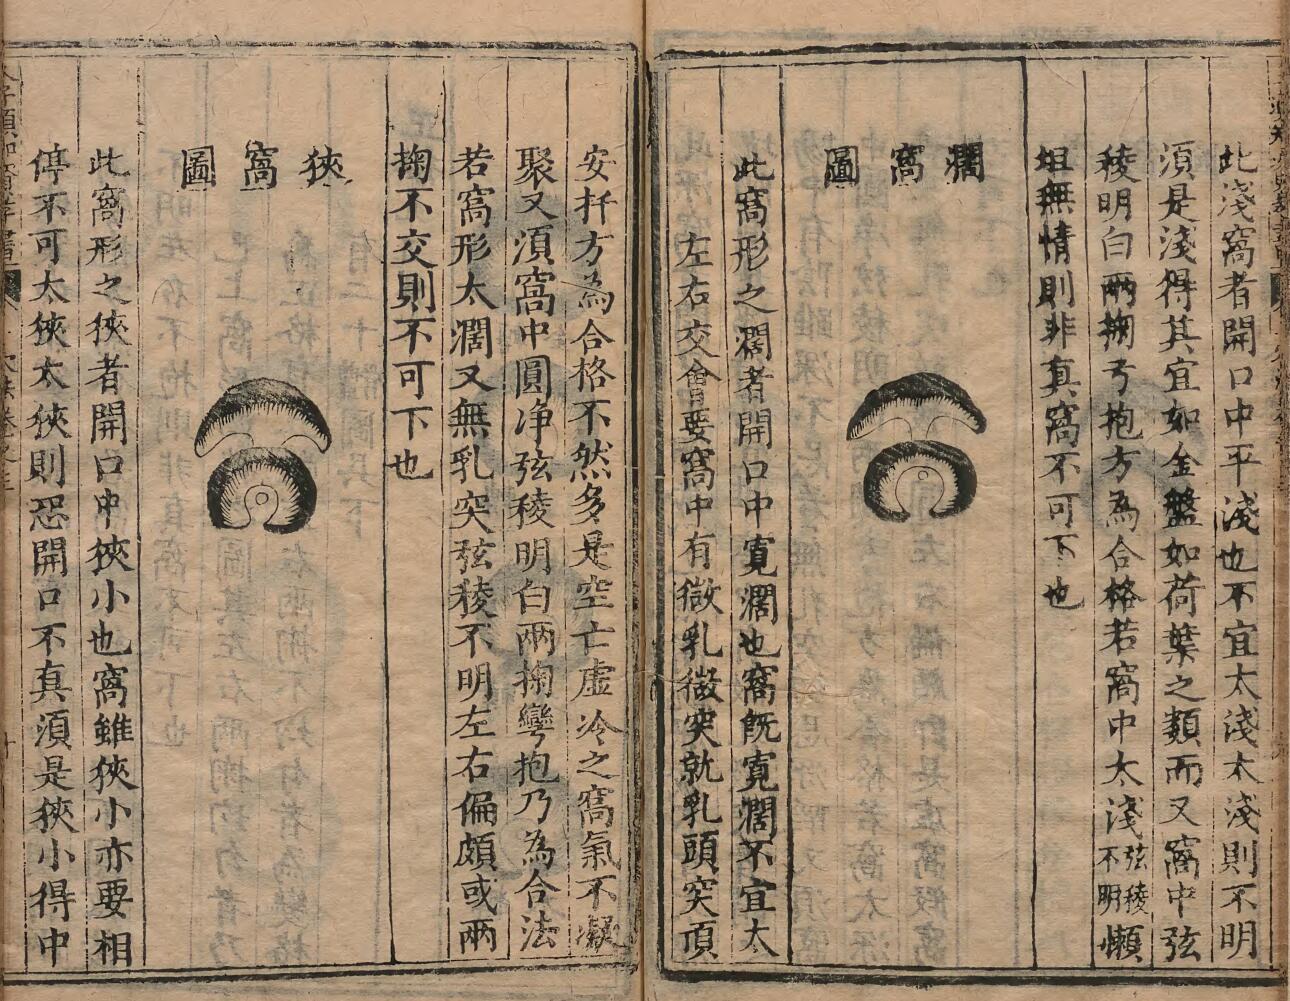 此淺窩者開口中平淺也不宜太淺太淺則不明
須是淺得其宜如金盤如荷葉之類而又窩中弦
稜明白兩掬弓抱方為合格若窩中太淺弦稜不明懶
坦無情則非真窩不可下也
濶窩圖
此窩形之濶者開口中寬濶也窩既寬濶不宜太
左右交會要窩中有微乳微突就乳頭突頂
安扦方為合格不然多是空亡虛冷之窩氣不凝
聚又須窩中圓净弦稜明白兩掬彎抱乃為合法
若窩形太濶又無乳突弦稜不明左右偏頗或兩
掬不交則不可下也
狹窩圖
此窩形之狹者開口中狹小也窩雖狹小亦要相
停不可太狹太狹則恐開口不真須是狹小得中